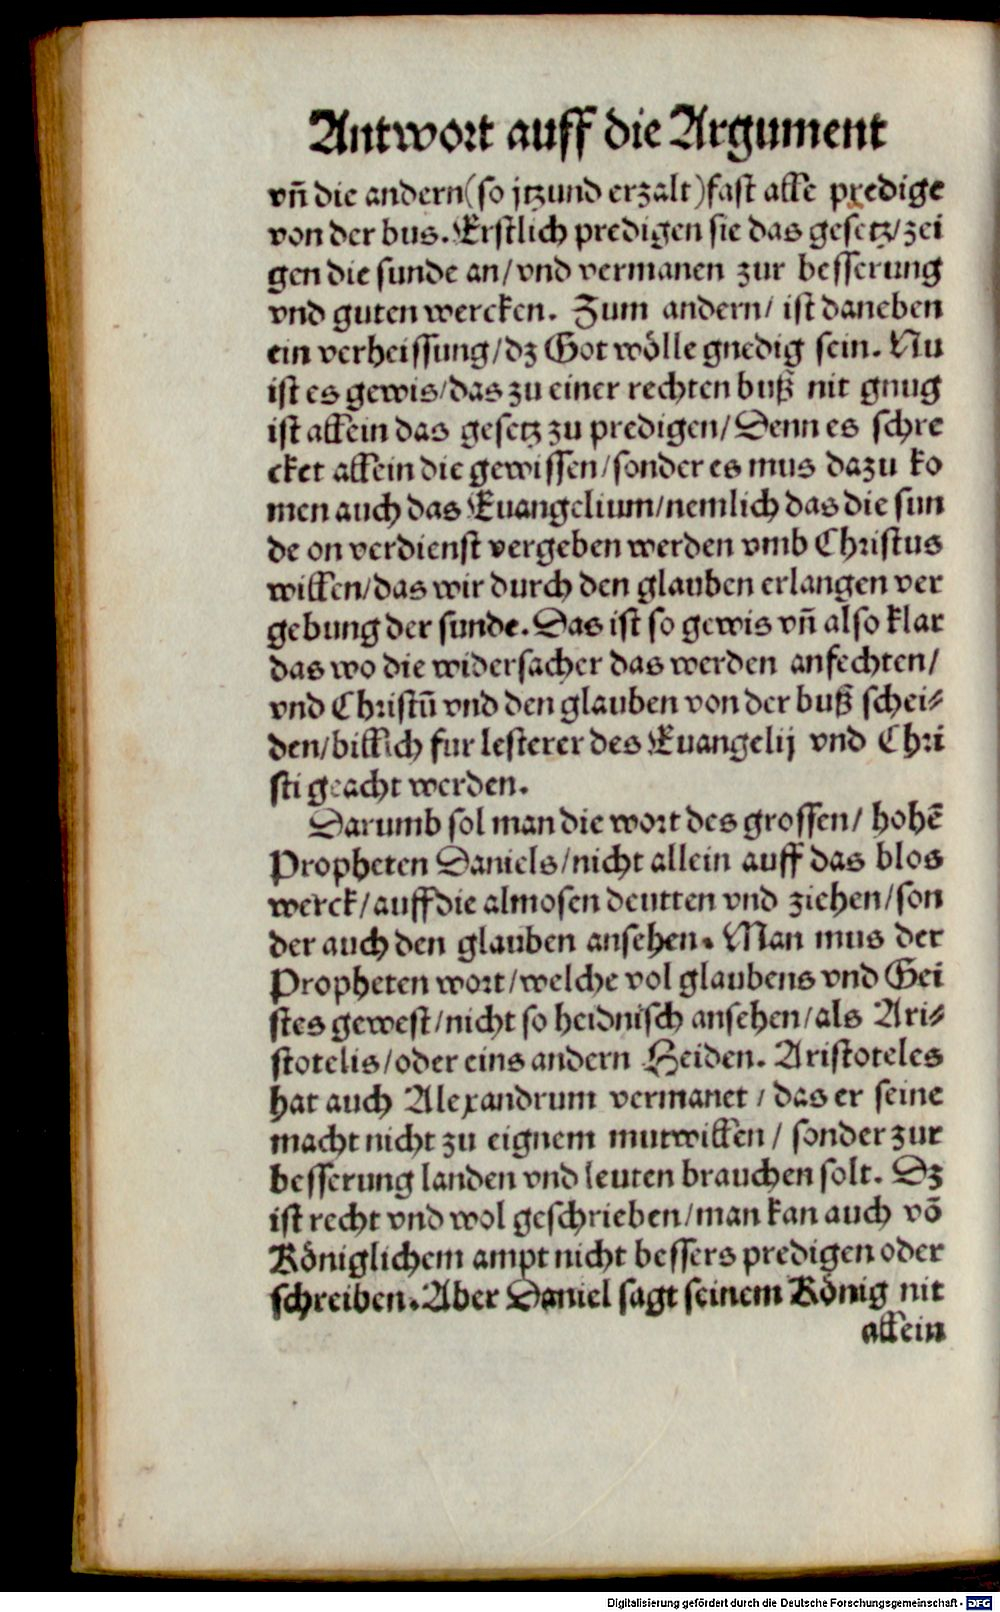 Antwort auff die Argument
vñ die andern (so jtzund erzalt) fast alle predige
von der bus. Erstlich predigen sie das gesetz/ zei
gen die sunde an/ vnd vermanen zur besserung
vnd guten wercken. Zum andern/ ist daneben
ein verheissung/ dz Got wölle gnedig sein. Nu
ist es gewis/ das zu einer rechten buß nit gnug
ist allein das gesetz zu predigen/ Denn es schre
cket allein die gewissen/ sonder es mus dazu ko
men auch das Euangelium/ nemlich das die sun
de on verdienst vergeben werden vmb Christus
willen/ das wir durch den glauben erlangen ver
gebung der sunde. Das ist so gewis vñ also klar
das wo die widersacher das werden anfechten/
vnd Christū vnd den glauben von der buß schei⸗
den/ billich fur lesterer des Euangelij vnd Chri
sti geacht werden.
Darumb sol man die wort des grossen/ hohē
Propheten Daniels/ nicht allein auff das blos
werck/ auff die almosen deutten vnd ziehen/ son
der auch den glauben ansehen. Man mus der
Propheten wort/ welche vol glaubens vnd Gei
stes gewest/ nicht so heidnisch ansehen/ als Ari⸗
stotelis/ oder eins andern Heiden. Aristoteles
hat auch Alexandrum vermanet/ das er seine
macht nicht zu eignem mutwillen/ sonder zur
besserung landen vnd leuten brauchen solt. Dz
ist recht vnd wol geschrieben/ man kan auch võ
Königlichem ampt nicht bessers predigen oder
schreiben. Aber Daniel sagt seinem König nit
allein
Digitalisierung gefördert durch die Deutsche Forschungsgemeinschaft - DFG